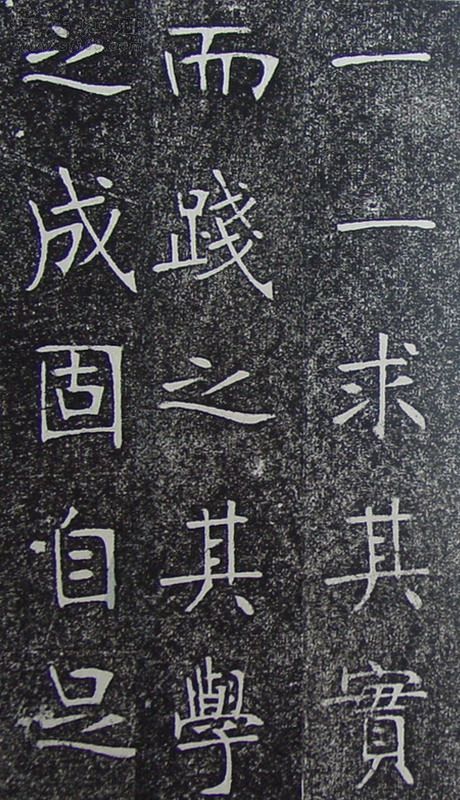 一一求其實
而踐之其學
之成固自足